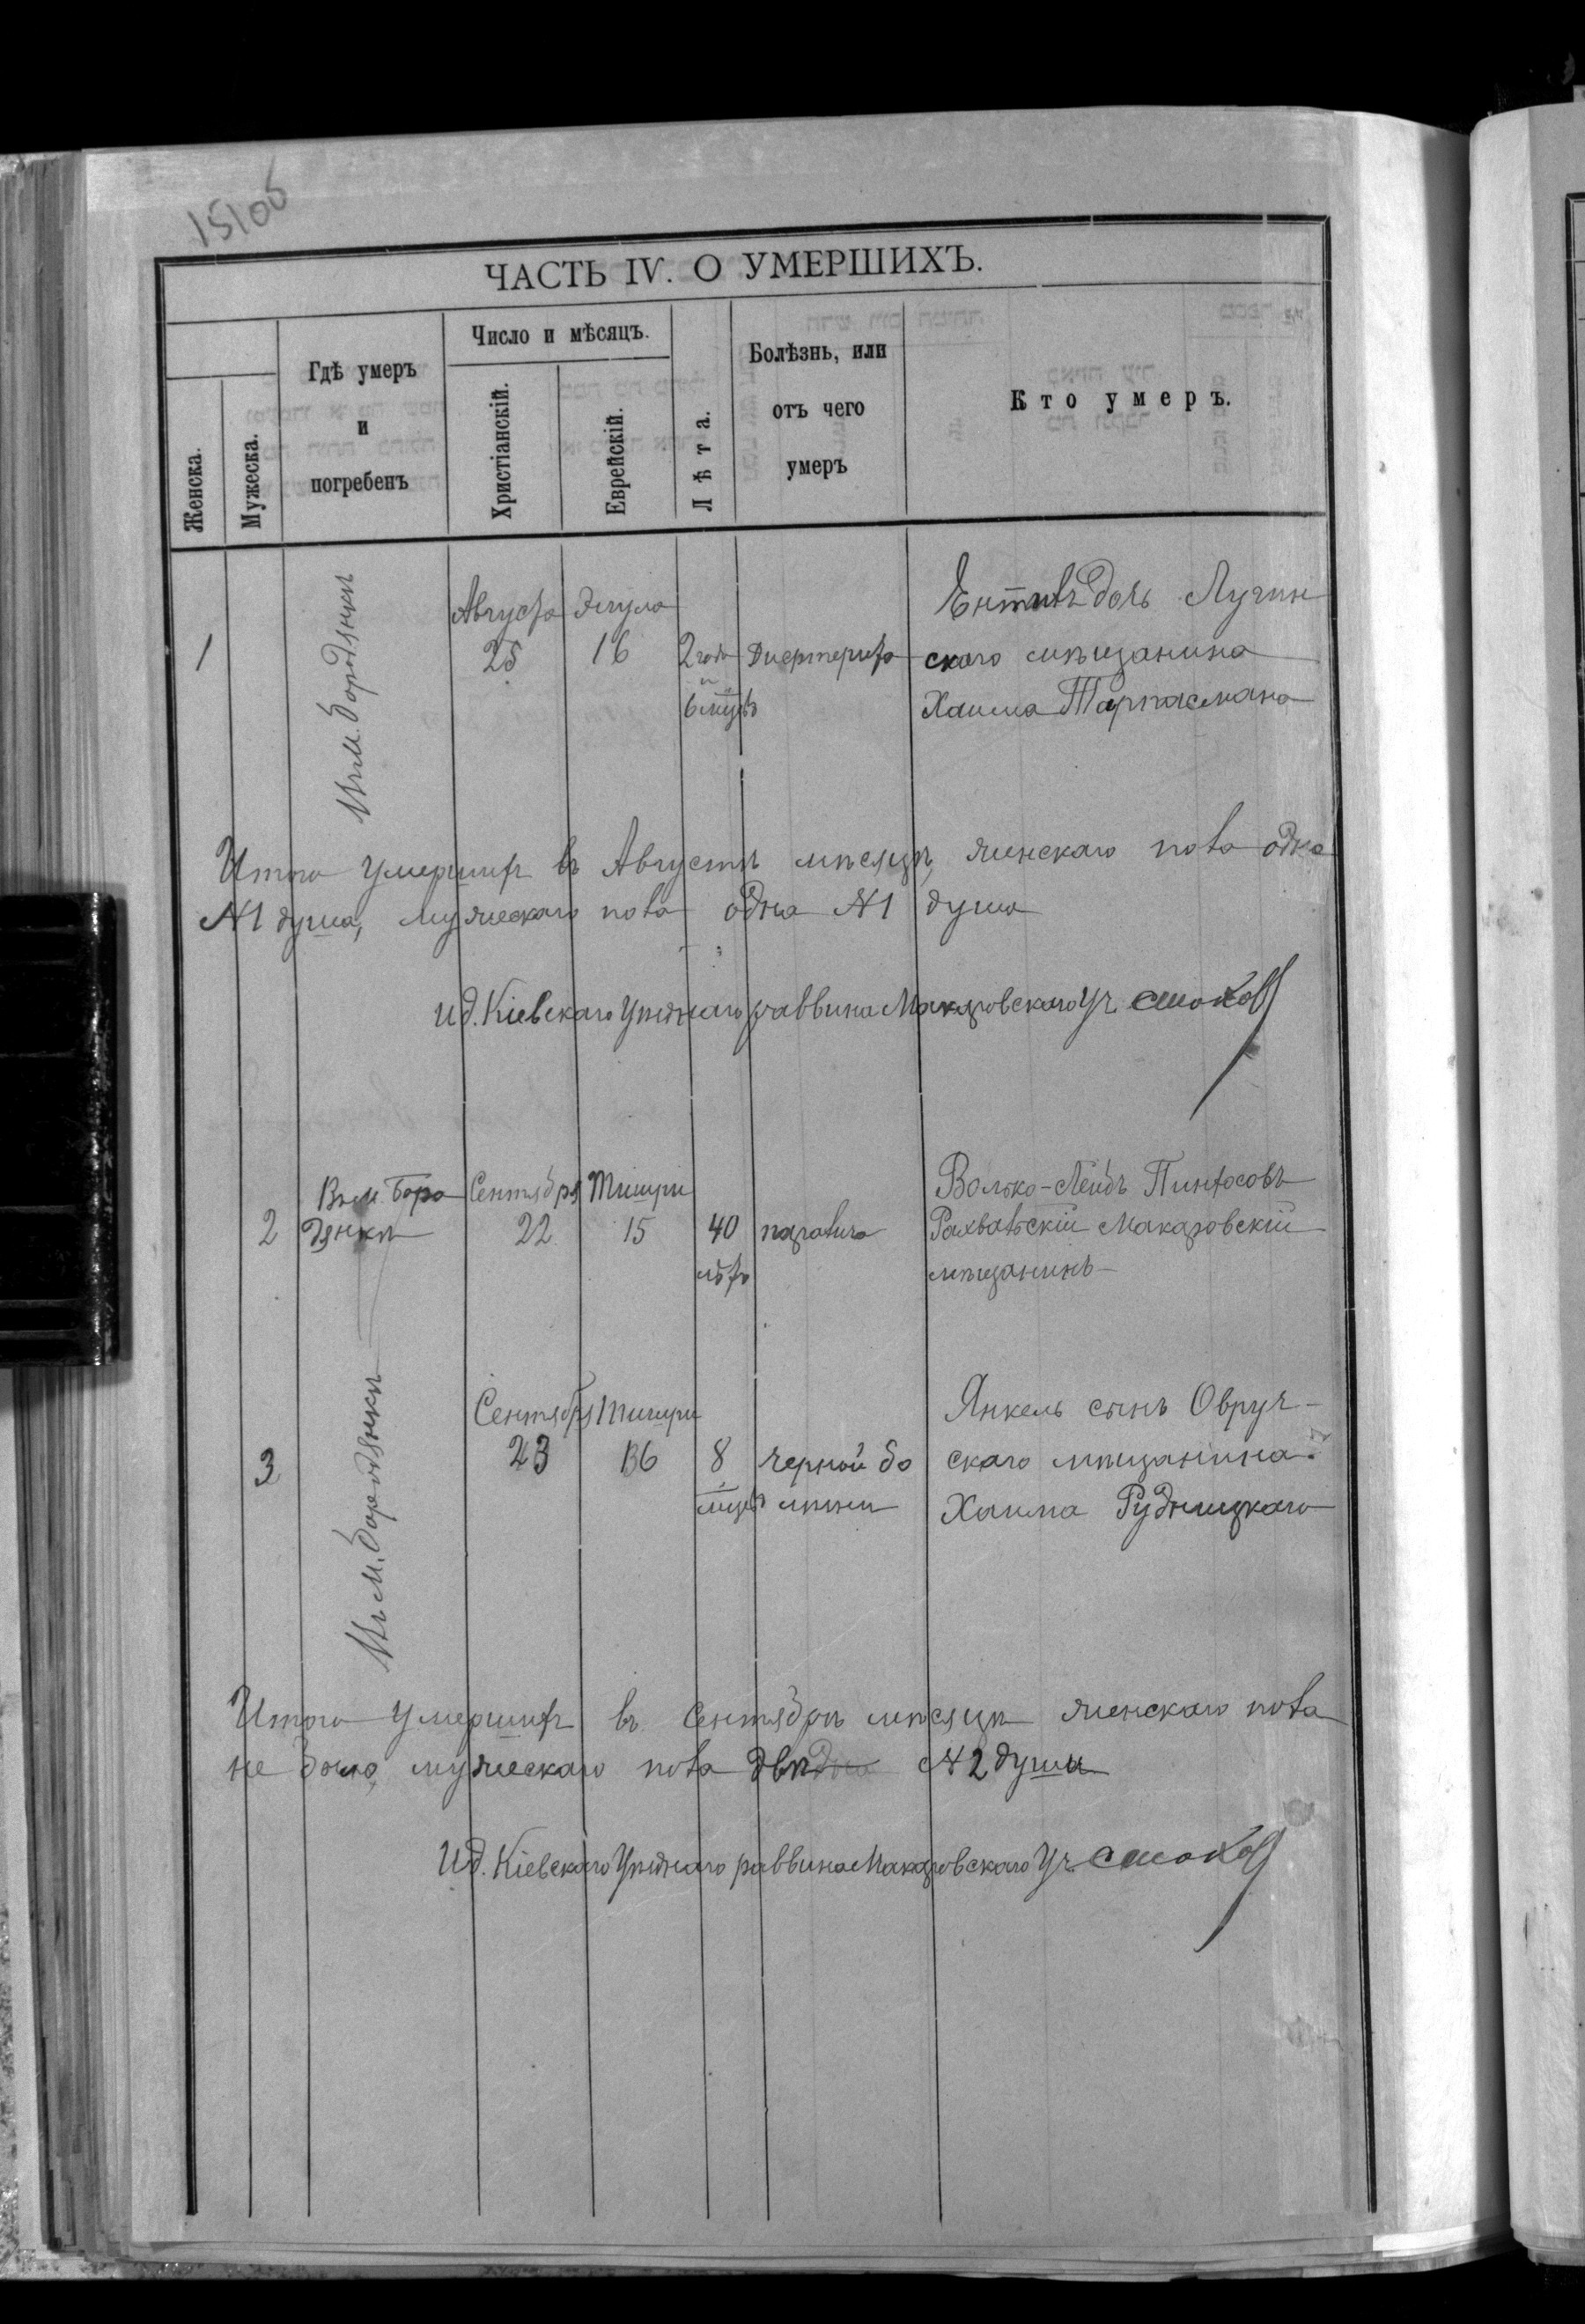 151об
ЧАСТЬ IV. О УМЕРШИХЪ.
Женска.
Мужеска.
Гдѣ умеръ
и
погребенъ
Число и мѣсяцъ.
Христіанскій.
Еврейскій.
Лѣта.
Болѣзнь, или
отъ чего
умеръ
Кто умеръ.
1
Въ м. Бородянкѣ
Августа
25
Элула
16
2 года
и
6 мцевъ
Дифтерита
дочь Лугин
скаго мѣщанина
Хаима
Итого умершихъ въ Августѣ мѣсяцѣ, женскаго пола одна
№ 1 душа, мужескаго пола одна № 1 душа
ид. Кіевскаго Уѣзднаго раввина Макаровскаго Уч.
2
Въ м. Боро
дянкѣ
Сентября
22
Тишри
15
40
лѣтъ
паралича
Волько-Лейбъ Пинхосовъ
Рахвальскій Макаровскій
мѣщанинъ
3
Въ м. Бородянкѣ
Сентября
23
Тишри
16
8
мцевъ
черной бо
лѣзни
Янкель сынъ Овруч-
скаго мѣщанина
Хаима Рудницкаго
Итого умершихъ въ Сентябрѣ мѣсяцѣ женскаго пола
не было, мужескаго пола двѣ № 2 души
Ид. Кіевскаго Уѣзднаго раввина Макаровскаго Уч.